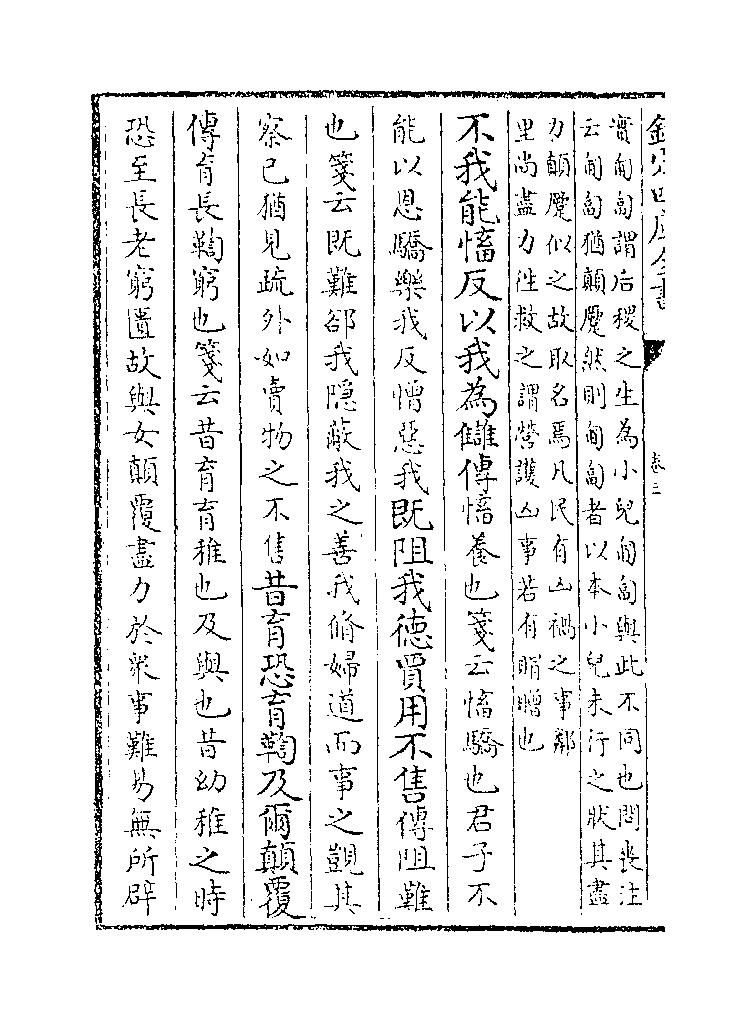 欽定四庫全書
卷二
實匍匐謂后稷之生為小兒匍匐與此不同也問喪注
云匍匐猶顛蹷然則匍匐者以本小兒未行之狀其盡
力顛蹷似之故取名焉凡民有凶禍之事鄰
里尚盡力往救之謂營護凶事若有賵贈也
不我能慉反以我為讎傳慉養也箋云慉驕也君子不
能以恩驕樂我反憎惡我既阻我德賈用不售傳阻難
也箋云既難郤我隱蔽我之善我脩婦道而事之覬其
察已猶見疏外如賣物之不售昔育恐育鞫及爾顛覆
傳育長鞫窮也箋云昔育育稚也及與也昔幼稚之時
恐至長老窮匱故與女顛覆盡力於衆事難易無所辟